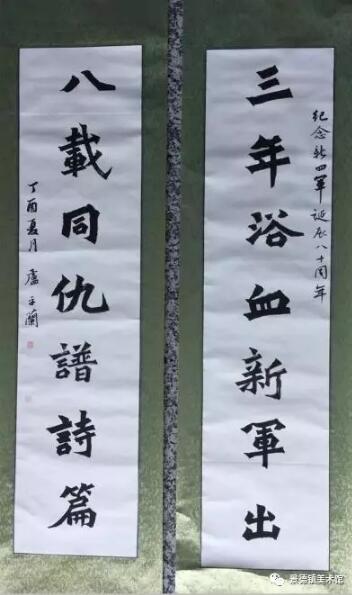 纪念新四軍诞辰八十周年
三年浴血新軍出
八載同仇譜詩篇
丁酉夏月 盧平蘭
景德镇美术馆